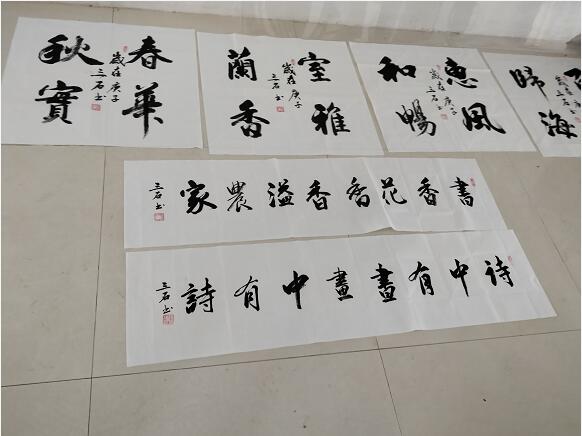 春華
歲在庚子
三石书
秋實
室雅
歲在庚子
三石书
蘭香
惠風
歲在庚子
三石书
和暢
歸海
書香花香香溢農家
三石书
詩中有畫畫中有詩
三石书